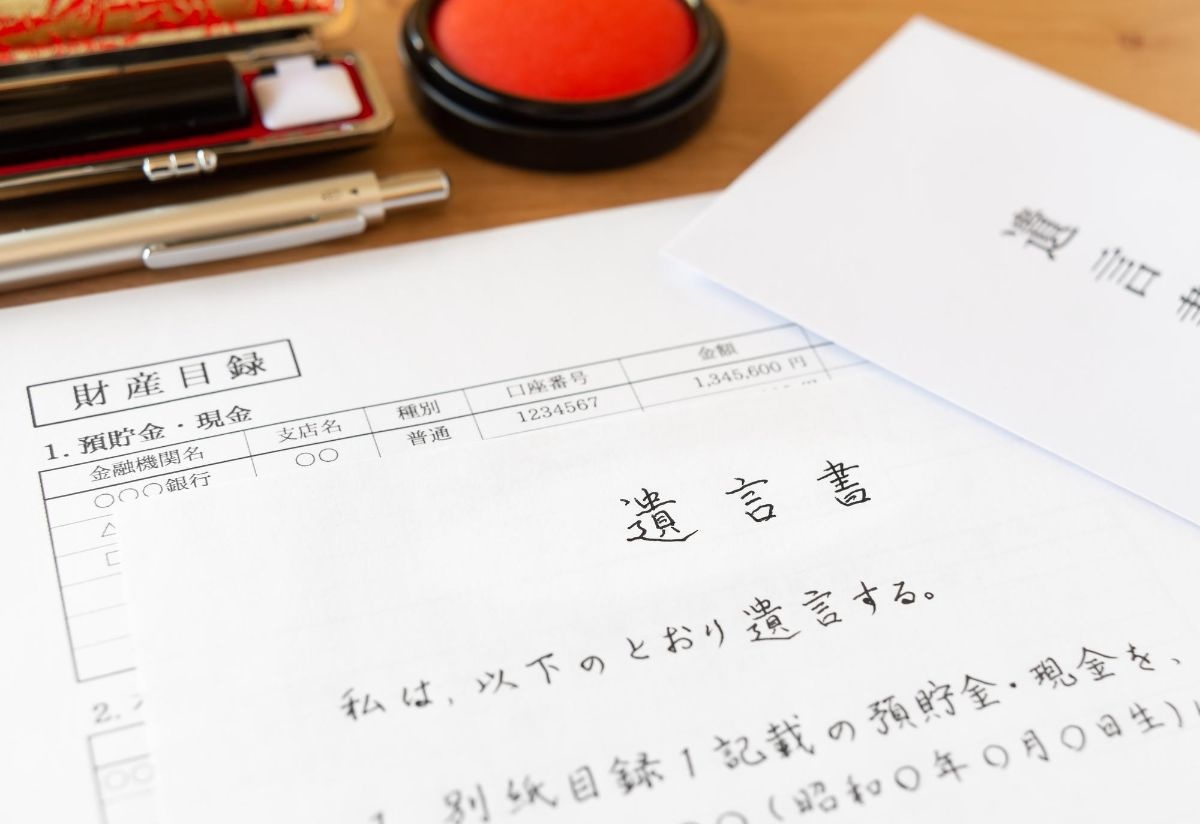 遺言
財産目録
1. 預貯金・現金
金融機関名 支店名 種別 口座番号 金額
○○○銀行 ○○ 普通 1234567 1,345,600 円
△
□
2.
○○
遺言書
私は、以下のとおり遺言する。
1 別紙目録1記載の預貯金・現金を、
○(昭和○年○月○日生)